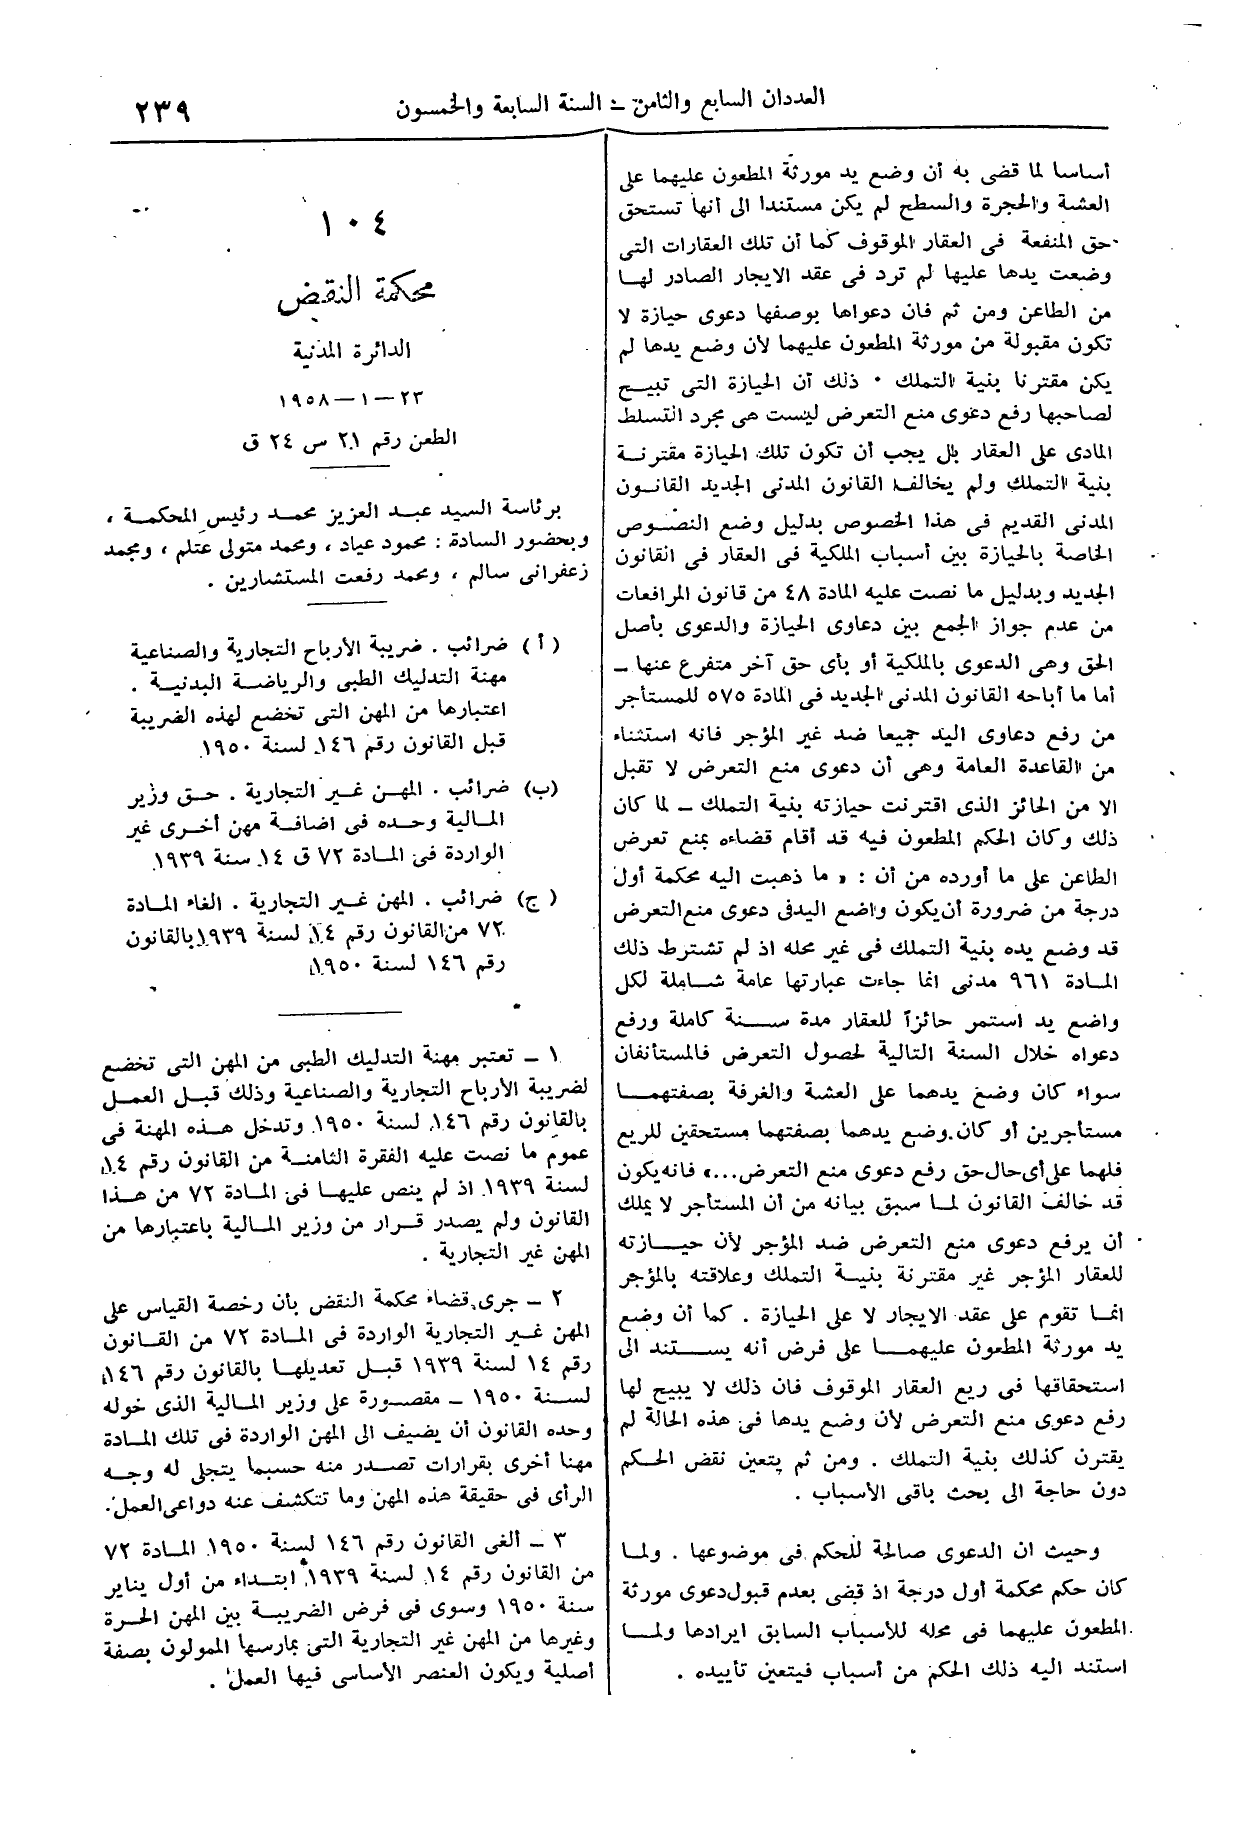 العددان السابع والثامن – السنة السابعة والخمسون
٢٣٩
أساسا لما قضى به أن وضع يد مورثة المطعون عليهما على
العشة والحجرة والسطح لم يكن مستندا الى أنها تستحق
حق المنفعة فى العقار الموقوف كما أن تلك العقارات التى
وضعت يدها عليها لم ترد فى عقد الايجار الصادر لهـا
من الطاعن ومن ثم فان دعواها بوصفها دعوى حيازة لا
تكون مقبولة من مورثة المطعون عليهما لأن وضع يدها لم
يكن مقترنا بنية التملك . ذلك أن الحيازة التى تبيـح
لصاحبها رفع دعوى منع التعرض ليست هى مجرد التسلط
المادى على العقار بل يجب أن تكون تلك الحيازة مقترنـة
بنية التملك ولم يخالف القانون المدنى الجديد القانـون
المدنى القديم فى هذا الخصوص بدليل وضع النصـوص
الخاصة بالحيازة بين أسباب الملكية فى العقار فى القانون
الجديد وبدليل ما نصت عليه المادة ٤٨ من قانون المرافعات
من عدم جواز الجمع بين دعاوى الحيازة والدعوى بأصل
الحق وهى الدعوى بالملكية أو بأى حق آخر متفرع عنها –
أما ما أباحه القانون المدنى الجديد فى المادة ٥٧٥ للمستأجر
من رفع دعاوى اليد جميعا ضد غير المؤجر فانه استثناء
من القاعدة العامة وهى أن دعوى منع التعرض لا تقبل
الا من الحائز الذى اقترنت حيازته بنية التملك – لما كان
ذلك وكان الحكم المطعون فيه قد أقام قضاءه بمنع تعرض
الطاعن على ما أورده من أن : « ما ذهبت اليه محكمة أول
درجة من ضرورة أن يكون واضع اليد فى دعوى منع التعرض
قد وضع يده بنية التملك فى غير محله اذ لم تشترط ذلك
المـادة ٩٦١ مدنى انما جاءت عبارتها عامة شـاملة لكل
واضع يد استمر حائزاً للعقار مدة سـنة كاملة ورفع
دعواه خلال السنة التالية لحصول التعرض فالمستأنفان
سواء كان وضع يدهما على العشة والغرفة بصفتهمـا
مستأجرين أو كان وضع يدهما بصفتهما مستحقين للريع
فلهما على أى حال حق رفع دعوى منع التعرض ...» فانه يكون
قد خالف القانون لمـا سبق بيانه من أن المستأجر لا يملك
أن يرفع دعوى منع التعرض ضد المؤجر لأن حيـازته
للعقار المؤجر غير مقترنة بنيـة التملك وعلاقته بالمؤجر
انمـا تقوم على عقد الايجار لا على الحيازة . كما أن وضع
يد مورثة المطعون عليهمـا على فرض أنه يسـتند الى
استحقاقها فى ريع العقار الموقوف فان ذلك لا يبيح لها
رفع دعوى منع التعرض لأن وضع يدها فى هذه الحالة لم
يقترن كذلك بنية التملك . ومن ثم يتعين نقض الحـكم
دون حاجة الى بحث باقى الأسباب .
وحيث ان الدعوى صالحة للحكم فى موضوعها . ولمـا
كان حكم محكمة أول درجة اذ قضى بعدم قبول دعوى مورثة
المطعون عليهما فى محله للأسباب السابق ايرادها ولمـا
استند اليه ذلك الحكم من أسباب فيتعين تأييده .
١٠٤
محكمة النقض
الدائرة المدنية
٢٣ – ١ – ١٩٥٨
الطعن رقم ٢١ س ٢٤ ق
برئاسة السيد عبـد العزيز محمـد رئيس المحكمـة ،
وبحضور السادة : محمود عياد ، ومحمد متولى عتلم ، ومحمد
زعفرانى سالم ، ومحمد رفعت المستشارين .
(أ) ضرائب . ضريبة الأرباح التجارية والصناعية
مهنة التدليك الطبى والرياضـة البدنيـة .
اعتبارها من المهن التى تخضع لهذه الضريبة
قبل القانون رقم ١٤٦ لسنة ١٩٥٠
(ب) ضرائب . المهـن غـير التجارية . حـق وزير
المـالية وحـده فى اضافـة مهن أخـرى غير
الواردة فى المـادة ٧٢ ق ١٤ سنة ١٩٣٩
(ج) ضرائب . المهن غـير التجارية . الغاء المـادة
٧٢ من القانون رقم ١٤ لسنة ١٩٣٩ بالقانون
رقم ١٤٦ لسنة ١٩٥٠
١ – تعتبر مهنة التدليك الطبى من المهن التى تخضع
لضريبة الأرباح التجارية والصناعية وذلك قبـل العمـل
بالقانون رقم ١٤٦ لسنة ١٩٥٠ وتدخل هـذه المهنة فى
عموم ما نصت عليه الفقرة الثامنـة من القانون رقم ١٤
لسنة ١٩٣٩ اذ لم ينص عليهـا فى المـادة ٧٢ من هـذا
القانون ولم يصدر قـرار من وزير المـالية باعتبارها من
المهن غير التجارية .
٢ – جرى قضاء محكمة النقض بأن رخصة القياس على
المهن غـير التجارية الواردة فى المـادة ٧٢ من القـانون
رقم ١٤ لسنة ١٩٣٩ قبـل تعديلهـا بالقانون رقم ١٤٦
لسـنة ١٩٥٠ – مقصـورة على وزير المـالية الذى خوله
وحده القانون أن يضيف الى المهن الواردة فى تلك المـادة
مهنا أخرى بقرارات تصـدر منه حسبما يتجلى له وجـه
الرأى فى حقيقة هذه المهن وما تتكشف عنه دواعى العمل .
٣ – ألغى القانون رقم ١٤٦ لسنة ١٩٥٠ المـادة ٧٢
من القانون رقم ١٤ لسنة ١٩٣٩ ابتـداء من أول يناير
سنة ١٩٥٠ وسوى فى فرض الضريبـة بين المهن الحـرة
وغيرها من المهن غير التجارية التى يمارسها الممولون بصفة
أصلية ويكون العنصر الأساسى فيها العمل .